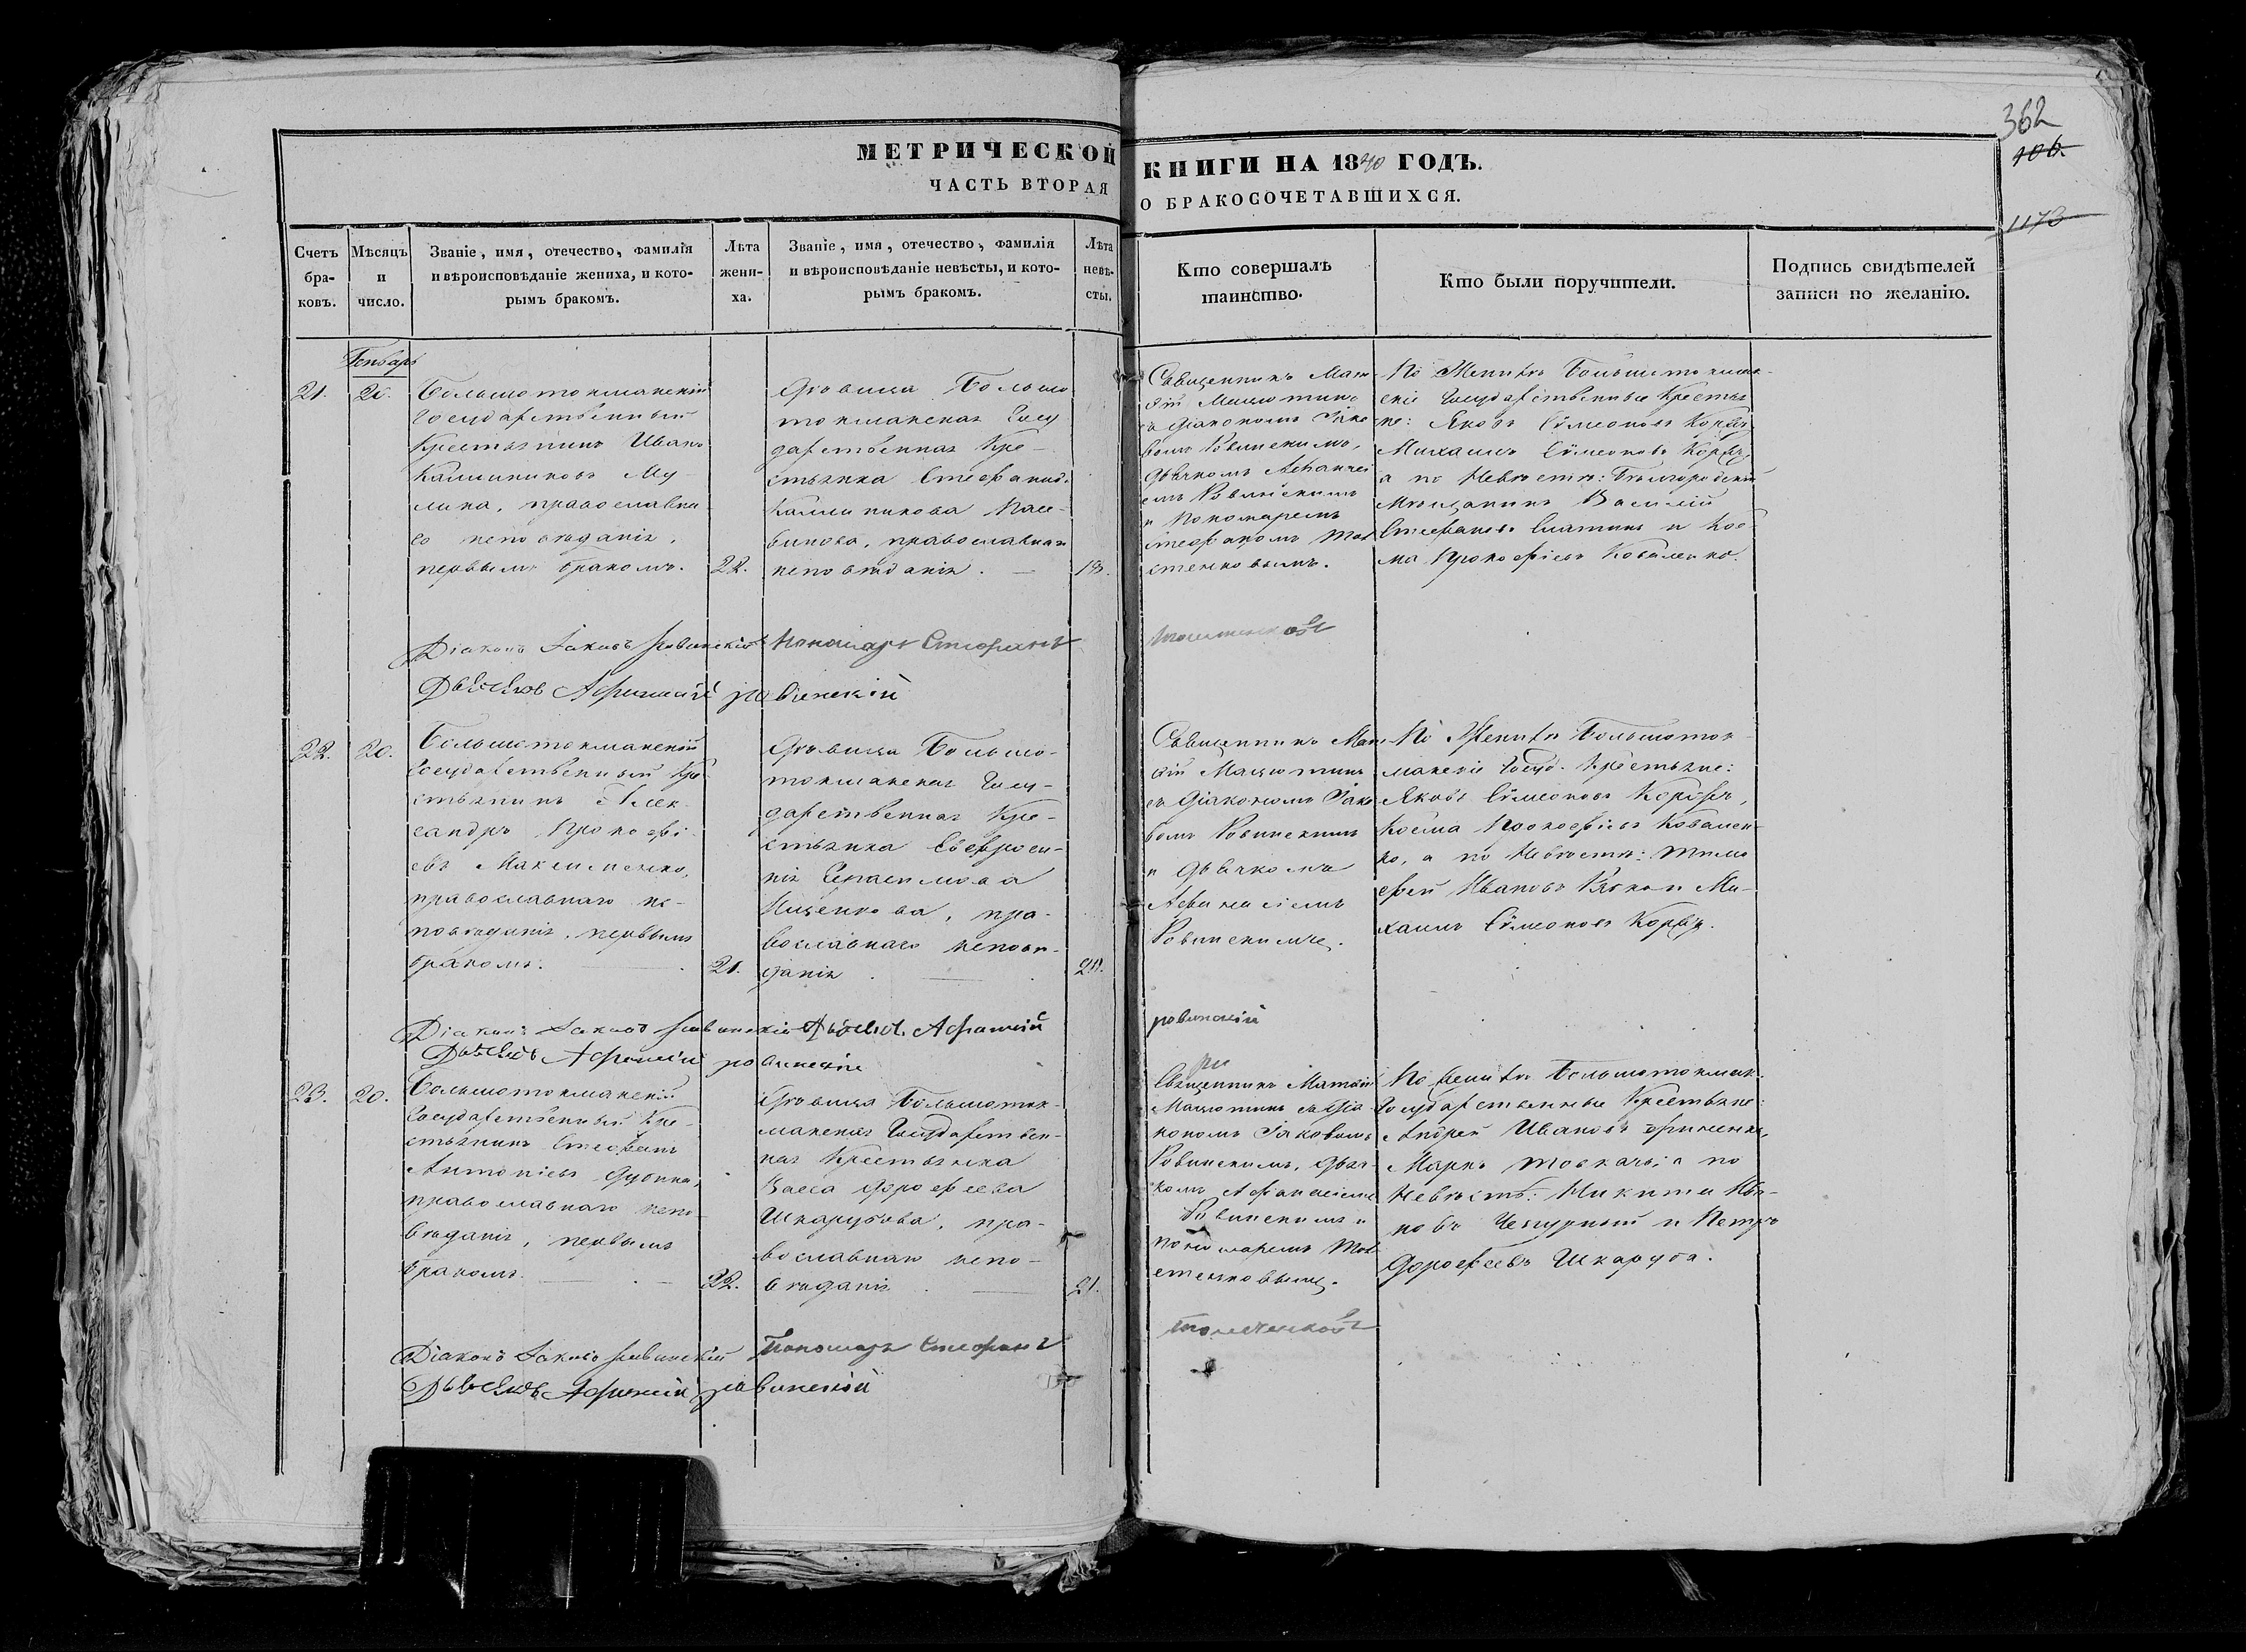 362
106.
1176
МЕТРИЧЕСКОЙ КНИГИ НА 1840 ГОДЪ.
ЧАСТЬ ВТОРАЯ О БРАКОСОЧЕТАВШИХСЯ.
Счетъ
бра-
ковъ.
Мѣсяцъ
и
число.
Званіе, имя, отечество, фамилія
и вѣроисповѣданіе жениха, и кото-
рымъ бракомъ.
Лѣта
жени-
ха.
Званіе, имя, отечество, фамилія
и вѣроисповѣданіе невѣсты, и кото-
рымъ бракомъ.
Лѣта
невѣ-
сты.
Кто совершалъ
таинство.
Кто были поручители.
Подпись свидѣтелей
записи по желанію.
Генварь
21.
20.
Большотокмакскій
Государственный
Крестьянинъ Иванъ
Калинниковъ Му-
лика, православна
го исповѣданія,
первымъ бракомъ.
22.
Дѣвица Больше
токмакская Госу
дарственная Кре-
стьянка Стефанида
Калиникова
православнаго
исповѣданія.
18.
Священникъ Мат
фій Мацютинъ
съ Діакономъ Іако
вомъ Ровинскимъ,
Дьячкомъ Афанасі
емъ Ровинскимъ
и Пономаремъ
Стефаномъ Тол
стенковымъ.
По Женихѣ Большетокмак-
скіе Государственные Крестья
не: Яковъ Сѵмеоновъ Корбъ,
Михаилъ Сѵмеоновъ Корбъ,
а по Невѣстѣ: Бѣлгородскій
Мѣщанинъ Василій
Стефановъ и Кос
ма Прокофіевъ Коваленко.
Діаконъ Іаковъ Ровинскій Пономарь Стефанъ Толстенковъ
Дьячокъ Афанасій Ровинскій
22.
20.
Большотокмакскій
Государственный Кре
стьянинъ Алек-
сандръ Прокофі-
евъ Максименко,
православнаго ис-
повѣданія, первымъ
бракомъ.
21.
Дѣвица Больше-
токмакская Госу-
дарственная Кре-
стьянка Евфроси-
нія Герасимова
Ищенкова, пра-
вославнаго исповѣ-
данія
20.
Священникъ Мат
фій Мацютинъ
съ Діакономъ Іако
вомъ Ровинскимъ
и Дьячкомъ
Афанасіемъ
Ровинскимъ.
По Женихѣ Большоток-
макскіе Госуд. Крестьяне:
Яковъ Сѵмеоновъ Корбъ,
Косма Прокофіевъ Ковален-
ко, а по Невѣстѣ: Тимо
фей Ивановъ и Ми-
хаилъ Сѵмеоновъ Корбъ.
Діаконъ Іаковъ Ровинскій Дьячокъ Афанасій Ровинскій
Дьячокъ Афанасій Ровинскій
23.
20.
Большотокмакскій
Государственный Кре-
стьянинъ Стефанъ
Антоніевъ
православнаго испо-
вѣданія, первымъ
бракомъ.
22.
Дѣвица Большоток-
макская Государствен-
ная Крестьянка
Васса Дорофеева
Шкарубова, пра-
вославнаго испо-
вѣданія
21.
Священникъ Матфій
Мацютинъ съ Діа-
кономъ Іаковомъ
Ровинскимъ, Дьяч-
комъ Афанасіемъ
Ровинскимъ и
пономаремъ Тол
стенковымъ.
По Женихѣ Большотокмак:
Государственные Крестьяне:
Андрей Ивановъ
Маркъ а по
Невѣстѣ: Никита Ива-
новъ и Петръ
Дорофеевъ Шкаруба.
Діаконъ Іаковъ Ровинскій Пономарь Стефанъ Толстенковъ
Дьячокъ Афанасій Ровинскій